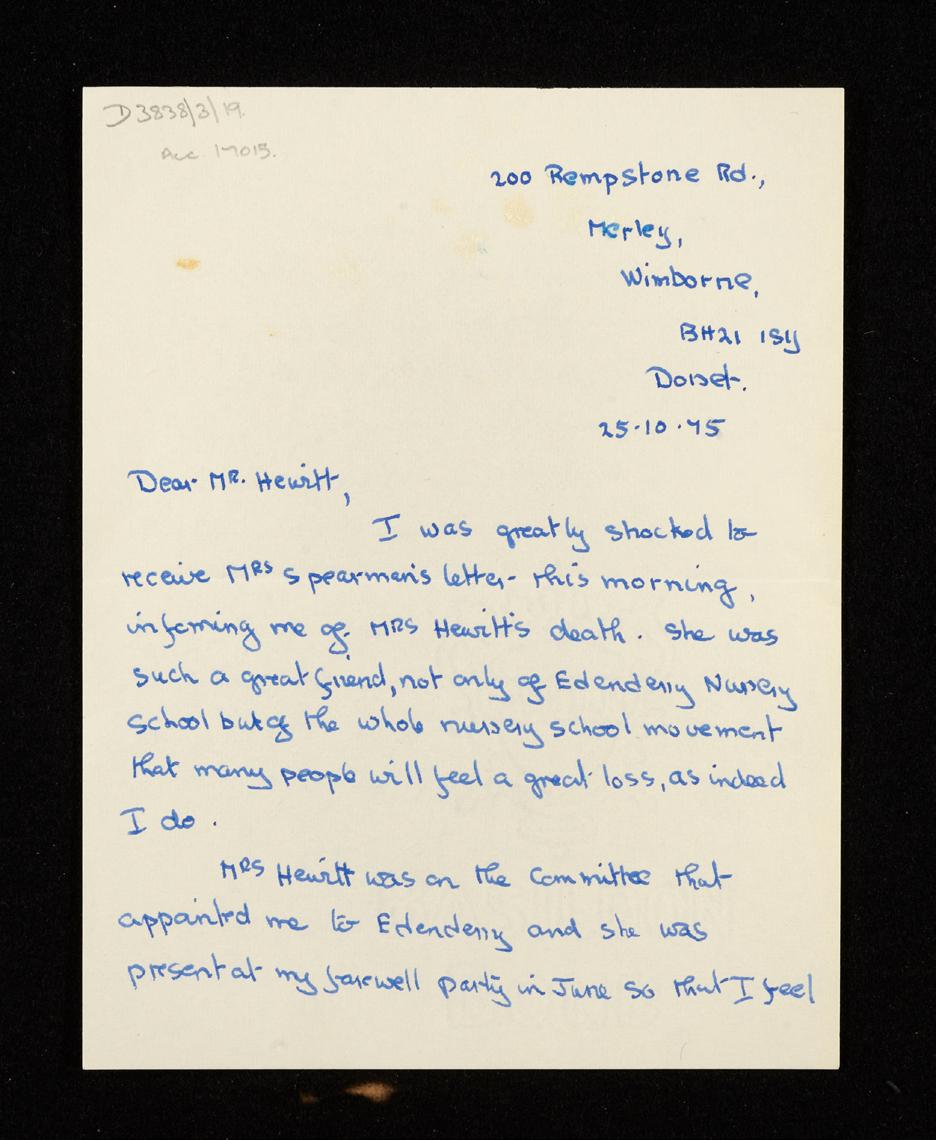 D3838/3/19.
Acc. 17015.
200 Rempstone Rd.,
Merley,
Wimborne,
BH21 1SY
Dorset.
25.10.75
Dear Mr. Hewitt,
I was greatly shocked to
receive Mrs Spearman's letter this morning,
informing me of Mrs Hewitt's death. She was
such a great friend, not only of Edenderry Nursery
School but of the whole nursery school movement
that many people will feel a great loss, as indeed
I do.
Mrs Hewitt was on the Committee that
appointed me to Edenderry and she was
present at my farewell party in June so that I feel